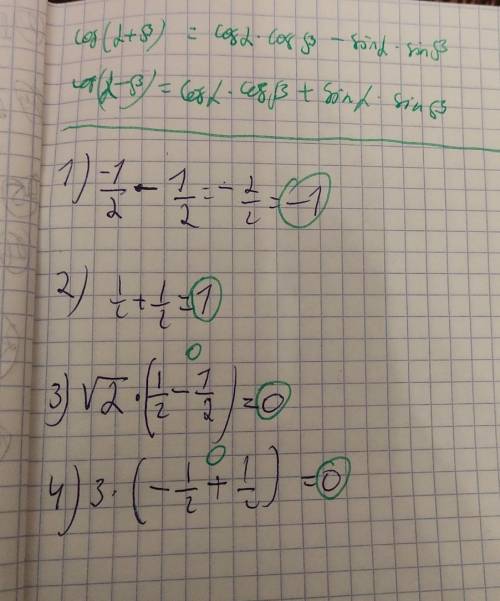 cos(α+β) = cosα · cosβ − sinα · sinβ
cos(α−β) = cosα · cosβ + sinα · sinβ
1) -1/2 − 1/2 = − 2/2 = −1
2) 1/2 + 1/2 = 1
0
3) √2 · (1/2 − 1/2) = 0
0
4) 3 · (− 1/2 + 1/2) = 0